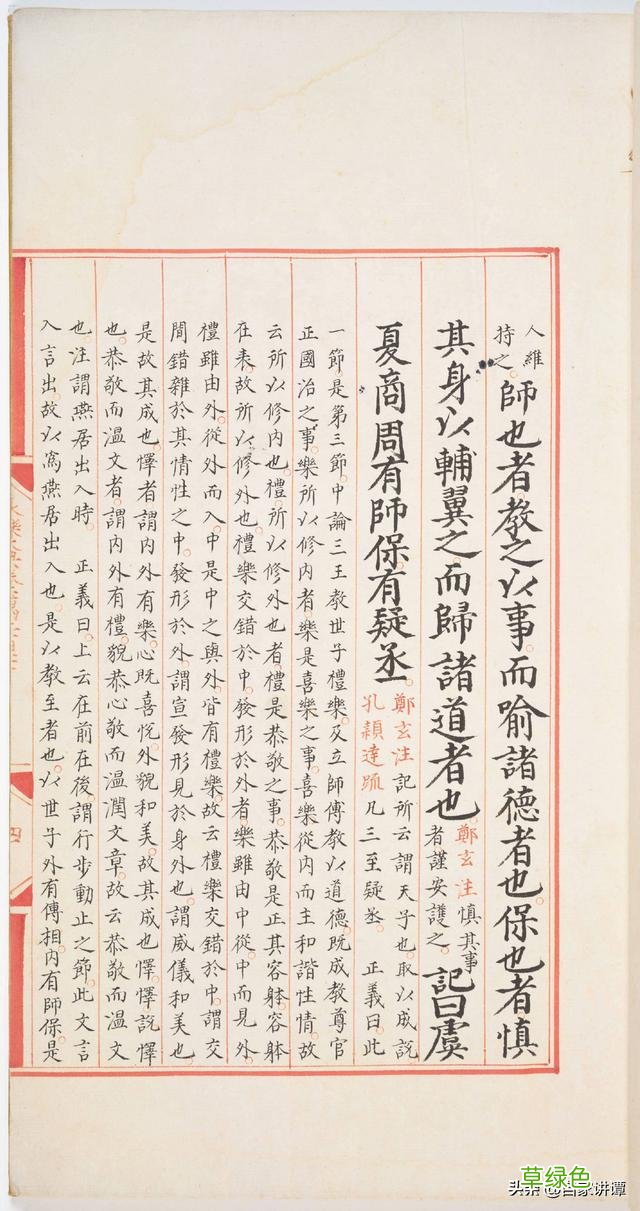 人維
持之
師也者教之以事而喻諸德者也保也者慎
其身以輔翼之而歸諸道者也
鄭玄注慎其事
者謹安護之
記曰虞
夏商周有師保有疑丞
鄭玄注記所云謂天子也取以成説
孔穎達疏凡三至疑丞 正義曰此
一節是第三節中論三王教世子禮樂及立師傅教以道德既成教尊官
正國治之事樂所以修内者樂是喜樂之事喜樂從内而主和諧性情故
云所以修内也禮所以修外也者禮是恭敬之事恭敬是正其容躰容躰
在表故所以修外也禮樂交錯於中發形於外者樂雖由中從中而見外
禮雖由外從外而入中是中之與外皆有禮樂故云禮樂交錯於中謂交
間錯雜於其情性之中發形於外謂宣發形見於身外也謂威儀和美也
是故其成也懌者謂内外有樂心既喜悦外貌和美故其成也懌懌説懌
也恭敬而温文者謂内外有禮貌恭心敬而温潤文章故云恭敬而温文
也注謂燕居出入時 正義曰上云在前在後謂行步動止之節此文言
入言出故以為燕居出入也是以教至者也以世子外有傅相内有師保是
四
草绿色
头条 @百家讲谭